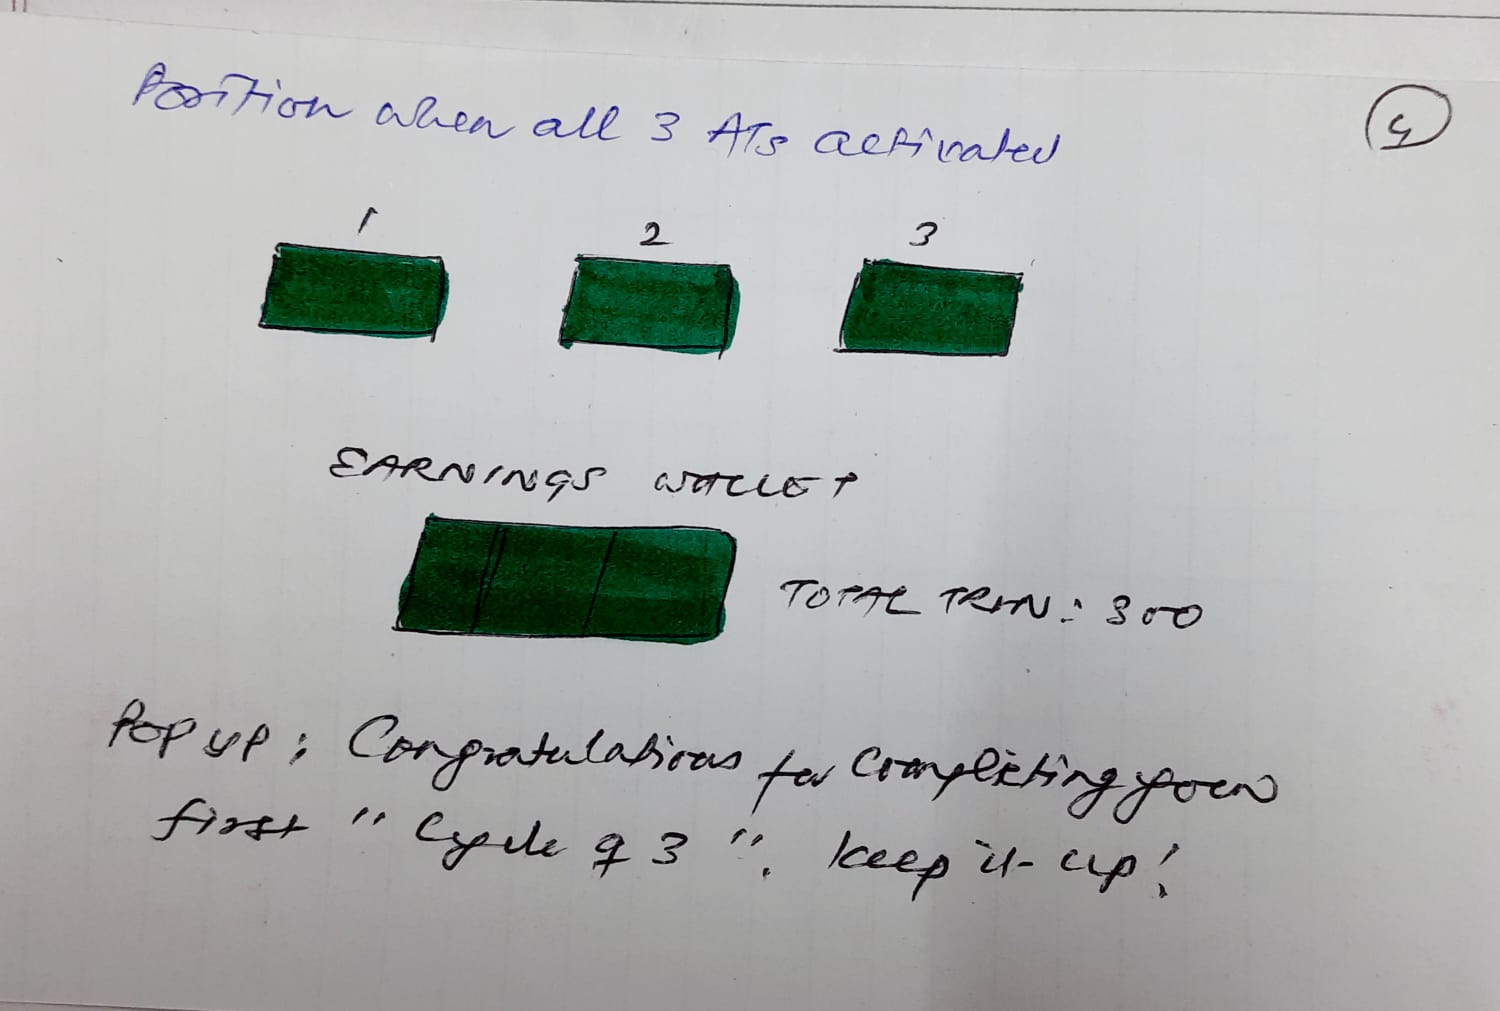 Position when all 3 ATs activated
4
1 2 3
EARNINGS WALLET
TOTAL TRXN: 300
Pop up: Congratulations for Completing your
first "Cycle of 3". keep it up!